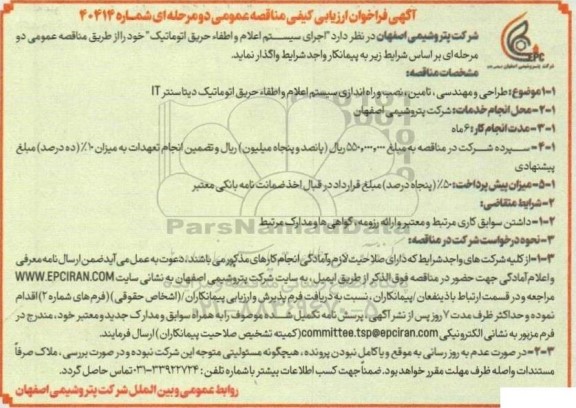 آگهی فراخوان ارزیابی کیفی مناقصه عمومی دو مرحله ای شماره ۴۰۴۱۴
شرکت پتروشیمی اصفهان در نظر دارد "اجرای سیستم اعلام و اطفاء حریق اتوماتیک" خود را از طریق مناقصه عمومی دو
مرحله ای بر اساس شرایط زیر به پیمانکار واجد شرایط واگذار نماید.
EPC
شرکت پتروشیمی اصفهان
مشخصات مناقصه:
۱-۱-موضوع: طراحی و مهندسی، تامین، نصب و راه اندازی سیستم اعلام و اطفاء حریق اتوماتیک دیتا سنتر IT
۲-۱- محل انجام خدمات: شرکت پتروشیمی اصفهان
۳-۱- مدت انجام کار: ۶ ماه
۴-۱- سپرده شرکت در مناقصه به مبلغ ۵۵۰,۰۰۰,۰۰۰ ریال (پانصد و پنجاه میلیون) ریال و تضمین انجام تعهدات به میزان ۱۰٪ (ده درصد) مبلغ
پیشنهادی
۵-۱- میزان پیش پرداخت: ۵۰٪ (پنجاه درصد) مبلغ قرارداد در قبال اخذ ضمانت نامه بانکی معتبر
۲- شرایط متقاضی:
۱-۲- داشتن سوابق کاری مرتبط و معتبر و ارائه رزومه، گواهی ها و مدارک مرتبط
۳- نحوه درخواست شرکت در مناقصه:
۱-۳- از کلیه شرکت های واجد شرایط که دارای صلاحیت لازم و آمادگی انجام کارهای مذکور می باشند، دعوت به عمل می آید ضمن ارسال نامه معرفی
و اعلام آمادگی جهت حضور در مناقصه فوق الذکر از طریق ایمیل، به سایت شرکت پتروشیمی اصفهان به نشانی سایت WWW.EPCIRAN.COM
مراجعه و در قسمت ارتباط با ذینفعان /پیمانکاران، نسبت به دریافت فرم پذیرش و ارزیابی پیمانکاران /(اشخاص حقوقی) (فرم های شماره ۲) اقدام
نموده و حداکثر ظرف مدت ۷ روز پس از نشر آگهی، پرسش نامه تکمیل شده موصوف را به همراه سوابق و مدارک جدید و معتبر خود، مندرج در
فرم مزبور به نشانی الکترونیکی committee.tsp@epciran.com (کمیته تشخیص صلاحیت پیمانکاران) ارسال فرمایند.
۲-۳- در صورت عدم به روز رسانی به موقع و یا کامل نبودن پرونده، هیچگونه مسئولیتی متوجه این شرکت نبوده و در صورت بررسی، ملاک صرفاً
مستندات واصله ظرف مهلت مقرر خواهد بود. ضمناً جهت کسب اطلاعات بیشتر با شماره تلفن: ۳۳۹۲۲۷۲۴-۰۳۱ تماس حاصل گردد.
روابط عمومی و بین الملل شرکت پتروشیمی اصفهان
ParsNamadData